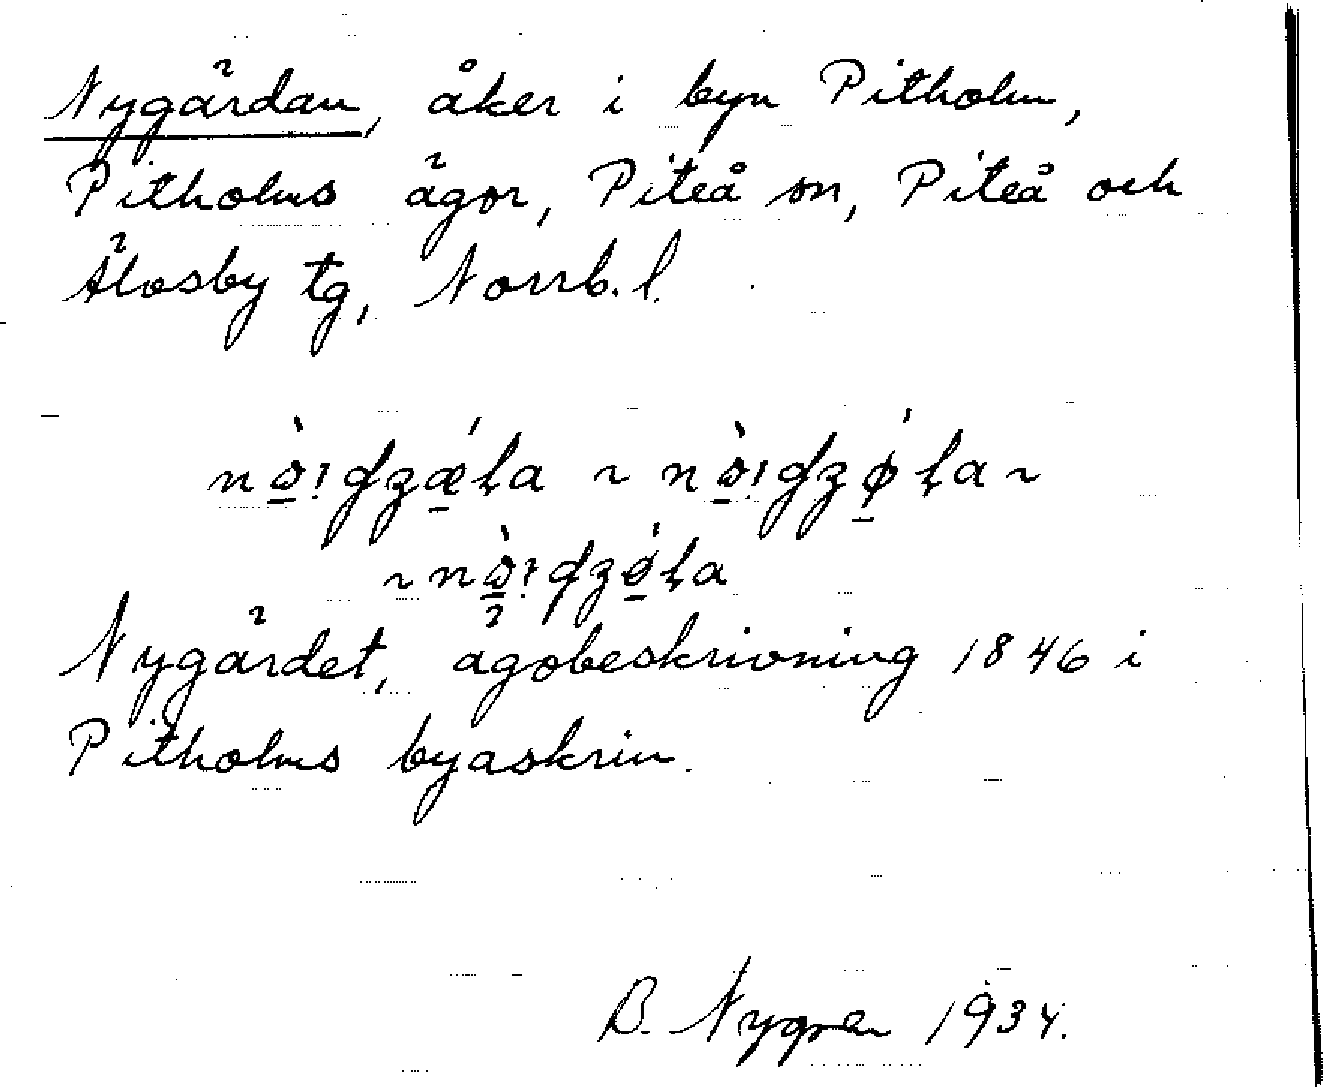 Nygärdan, åker i byn Pitholm,
Pitholms ägor, Piteå sn, Piteå och
Älvsby tg, Norrb. l.
Nygärdet, ägobeskrivning 1846 i
Pitholms byaskrin.
B. Nygren 1934.